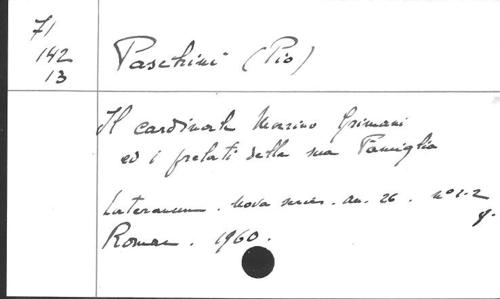 71
142
13
Paschini (Pio)
Il cardinale Marino Grimani
ed i prelati della sua Famiglia
Lateranum. Nova series. an. 26. n° 1-2
8.
Romae. 1960.